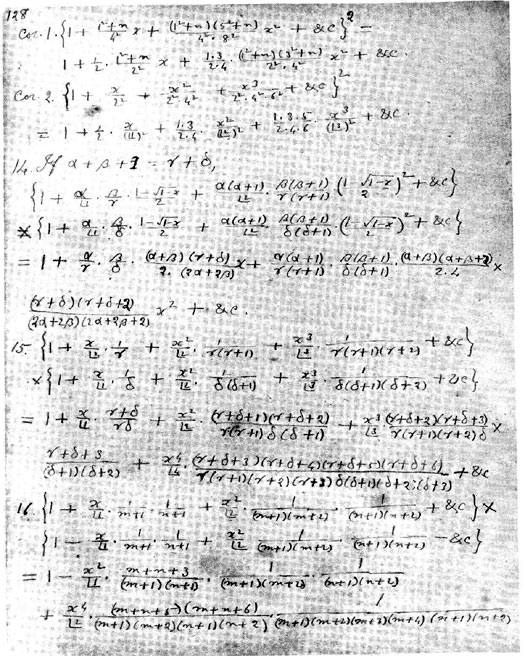 128
Cor. 1. {1 + (1²+n)/4² x + (1²+n)(5²+n)/(4².8²) x² + &c}² =
1 + ½. (1²+n)/2² x + (1.3)/(2.4). (1²+n)(3²+n)/(2².4²) x² + &c.
Cor. 2. {1 + x/2² + x²/(2².4²) + x³/(2².4².6²) + &c}²
= 1 + ½. x/(|1)² + (1.3)/(2.4). x²/(|2)² + (1.3.5)/(2.4.6). x³/(|3)² + &c.
14. If α + β + 1 = γ + δ,
{1 + α/|1. β/γ. (1-√(1-x))/2 + α(α+1)/|2. β(β+1)/γ(γ+1) ((1-√(1-x))/2)² + &c}
× {1 + α/|1. β/δ. (1-√(1-x))/2 + α(α+1)/|2. β(β+1)/δ(δ+1) ((1-√(1-x))/2)² + &c}
= 1 + α/γ. β/δ. (α+β)(γ+δ)/2.(2α+2β) x + α(α+1)/γ(γ+1). β(β+1)/δ(δ+1). (α+β)(α+β+2)/2.4 ×
(γ+δ)(γ+δ+2)/(2α+2β)(2α+2β+2) x² + &c.
15. {1 + x/|1. 1/γ + x²/|2. 1/γ(γ+1) + x³/|3. 1/γ(γ+1)(γ+2) + &c}
× {1 + x/|1. 1/δ + x²/|2. 1/δ(δ+1) + x³/|3. 1/δ(δ+1)(δ+2) + &c}
= 1 + x/|1. (γ+δ)/γδ + x²/|2. (γ+δ+1)(γ+δ+2)/γ(γ+1)δ(δ+1) + x³/|3. (γ+δ+2)(γ+δ+3)/γ(γ+1)(γ+2)δ ×
(γ+δ+3)/(δ+1)(δ+2) + x⁴/|4. (γ+δ+3)(γ+δ+4)(γ+δ+5)(γ+δ+6)/γ(γ+1)(γ+2)(γ+3)δ(δ+1)(δ+2)(δ+3) + &c
16. {1 + x/|1. 1/(m+1). 1/(n+1) + x²/|2. 1/(m+1)(m+2). 1/(n+1)(n+2) + &c} ×
{1 - x/|1. 1/(m+1). 1/(n+1) + x²/|2. 1/(m+1)(m+2). 1/(n+1)(n+2) - &c}
= 1 - x²/|1. (m+n+3)/(m+1)(n+1). 1/(m+1)(m+2). 1/(n+1)(n+2)
+ x⁴/|2. (m+n+5)(m+n+6)/(m+1)(m+2)(n+1)(n+2). 1/(m+1)(m+2)(m+3)(m+4) (n+1)(n+2)